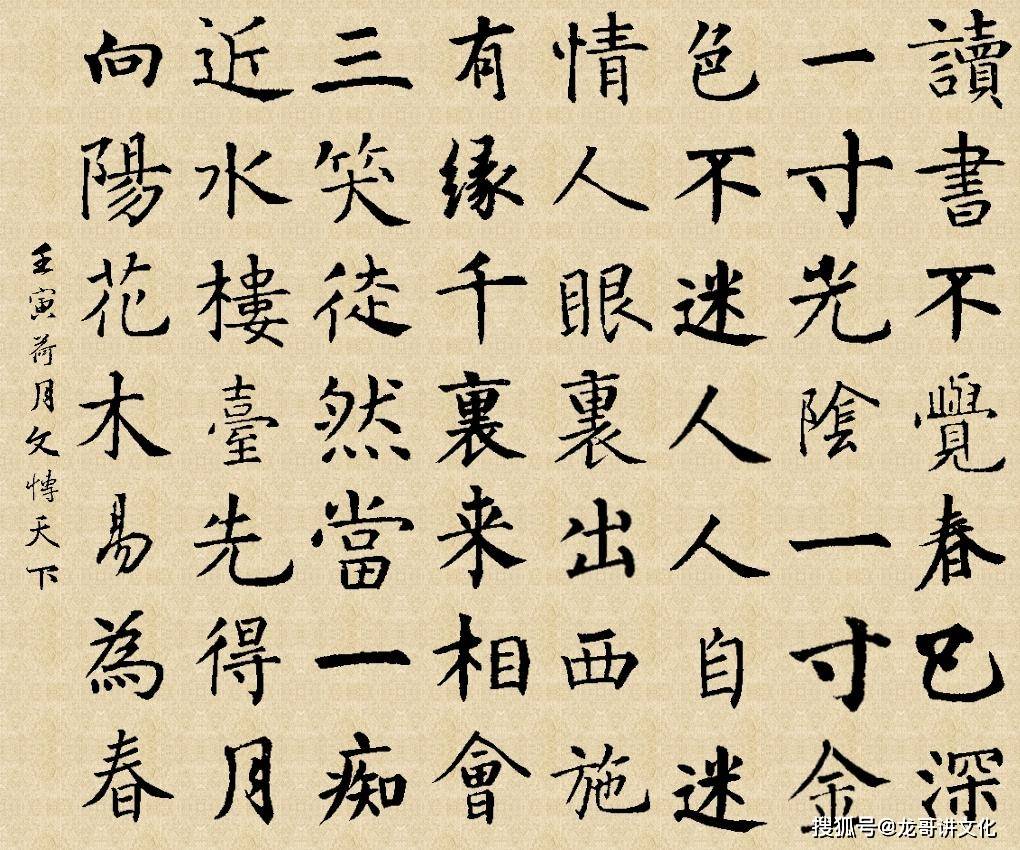 讀書不覺春已深
一寸光陰一寸金
色不迷人人自迷
情人眼裏出西施
有緣千裏来相會
三笑徒然當一痴
近水樓臺先得月
向陽花木易為春
壬寅荷月文博天下
搜狐号@龙哥讲文化